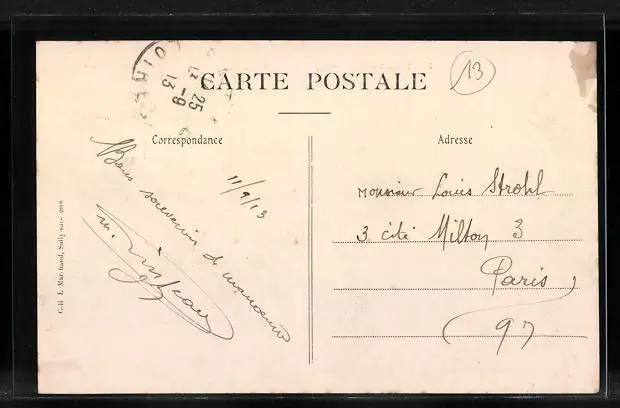 CARTE POSTALE
13
13 25
13 -9
Correspondance
Adresse
11/9/13
Bons souvenir de manoeuvre
m.
Monsieur Louis Strohl
3 cité Milton 3
Paris
97
Coll J. Marchand, Sully-sur-Loire